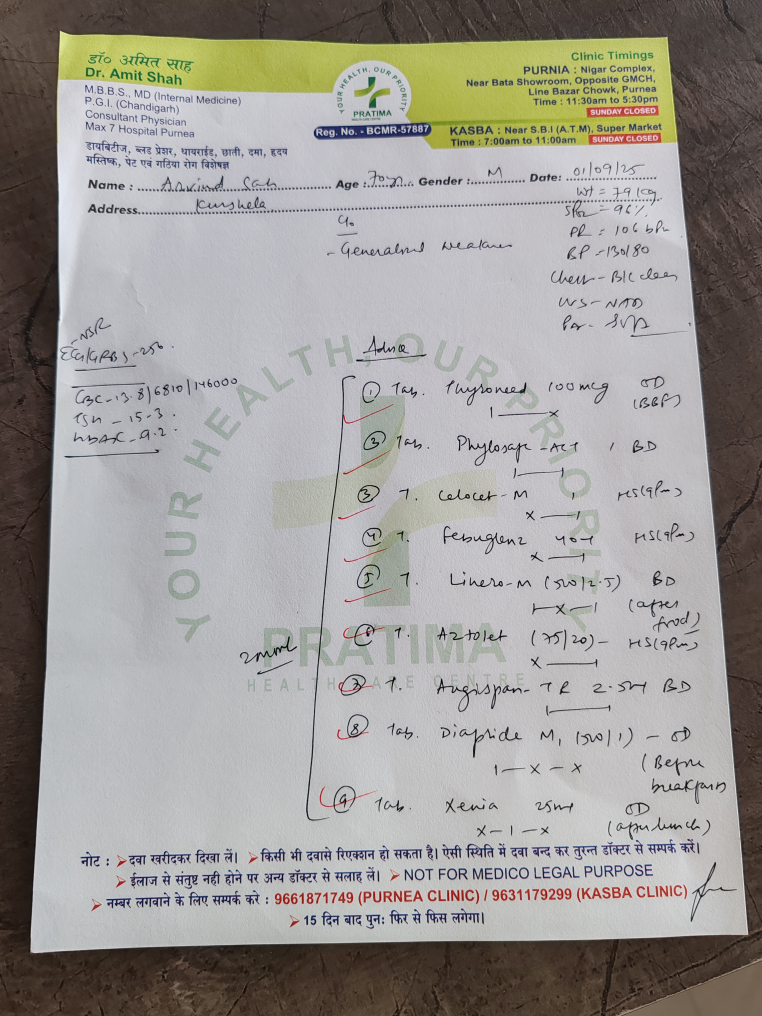 डॉ० अमित साह
Dr. Amit Shah
M.B.B.S., MD (Internal Medicine)
P.G.I. (Chandigarh)
Consultant Physician
Max 7 Hospital Purnea
डायबिटीज, ब्लड प्रेशर, थायराईड, छाती, दमा, हृदय
मस्तिष्क, पेट एवं गठिया रोग विशेषज्ञ
YOUR HEALTH, OUR PRIORITY
PRATIMA
HEALTH CARE CENTRE
Reg. No. - BCMR-57887
Clinic Timings
PURNIA : Nigar Complex,
Near Bata Showroom, Opposite GMCH,
Line Bazar Chowk, Purnea
Time : 11:30am to 5:30pm
SUNDAY CLOSED
KASBA : Near S.B.I (A.T.M), Super Market
Time : 7:00am to 11:00am SUNDAY CLOSED
Name : Arvind Sah Age : 70yr Gender : M Date: 01/09/25
Address Kurshela
Wt = 79 kg
SPO2 = 96%
PR = 106 bpm
BP - 130/80
Chest - B/L clear
CVS - NAD
C/o
- Generalised weakness
- NSR
ECG/GRBS - 256.
CBC - 13.8/6810/146000
TSH - 15.3.
HbA1C - 9.2
Advice
① Tab. Thyroneed 100mcg OD
(BBF)
1—x
② Tab. - ACT 1 BD
1—1
③ T. Celocet-M 1 HS(9pm)
x—1
④ T. 40mg HS(9pm)
x—1
⑤ T. Linero-M (500/2.5) BD
1-x-1 (after food)
⑥ T. Aztolet (75/20) - HS(9pm)
x—1
⑦ T. Angispan-TR 2.5mg BD
1—1
⑧ Tab. Diapride M1 (500/1) - OD
1—x—x (Before breakfast)
⑨ Tab. Xenia 25mg OD
x—1—x (after lunch)
YOUR HEALTH, OUR PRIORITY
PRATIMA
HEALTH CARE CENTRE
नोट : ➤दवा खरीदकर दिखा लें। ➤किसी भी दवासे रिएक्शन हो सकता है। ऐसी स्थिति में दवा बन्द कर तुरन्त डॉक्टर से सम्पर्क करें।
➤ईलाज से संतुष्ट नही होने पर अन्य डॉक्टर से सलाह लें। ➤NOT FOR MEDICO LEGAL PURPOSE
➤नम्बर लगवाने के लिए सम्पर्क करे : 9661871749 (PURNEA CLINIC) / 9631179299 (KASBA CLINIC)
➤15 दिन बाद पुनः फिर से फिस लगेगा।